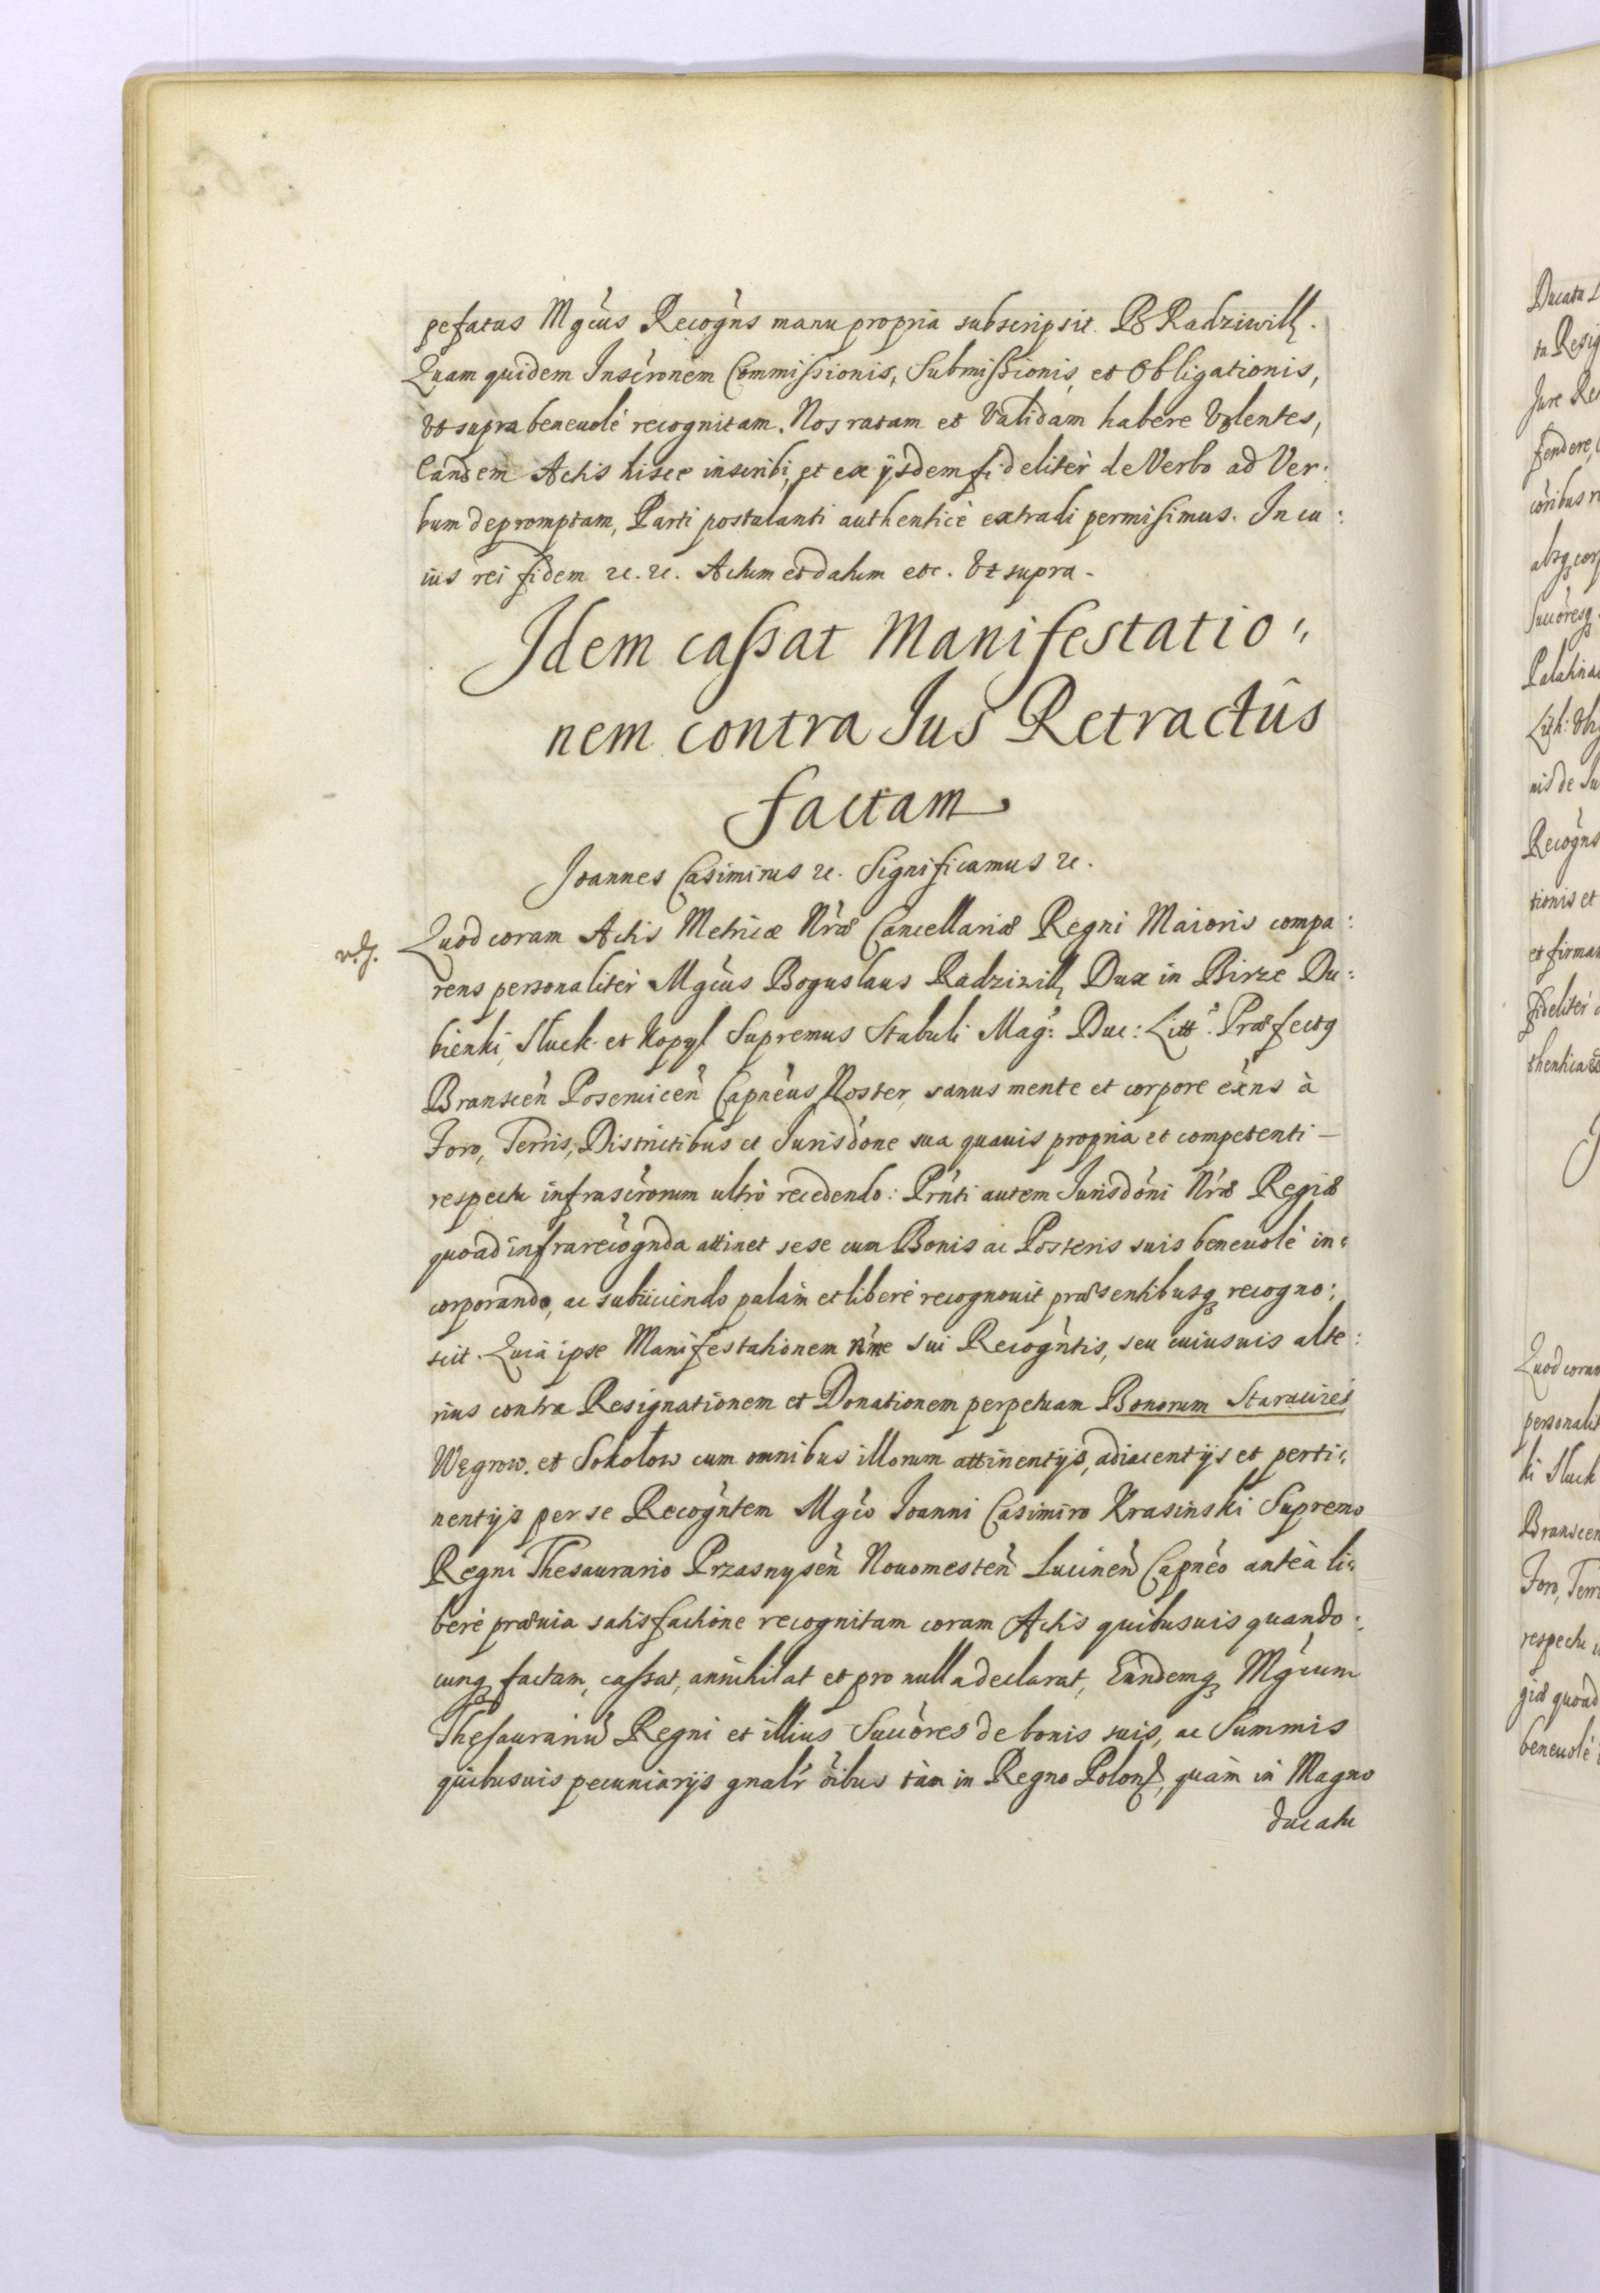 pefatus Mgcus Recogns manu propria subscripsit. B Radziwiłł.
Quam quidem Inscronem Commissionis, Submissionis, et Obligationis,
Ut supra beneuolè recognitam. Nos ratam et Validam habere Volentes,
Eandem Actis hisce inscribi, et ex ijsdem fideliter de Verbo ad Ver:
bum depromptam, Parti postulanti authenticè extradi permisimus. In cu:
ius rei fidem etc. etc. Actum et datum etc. Ut supra.
Idem cassat Manifestatio:
nem contra Jus Retractûs
factam
Joannes Casimirus etc. Significamus etc.
Quod coram Actis Metricæ Nræ Cancellariæ Regni Maioris compa:
rens personaliter Mgcus Boguslaus Radziwiłł Dux in Birze Du:
bienki, Sluck et Kopyl Supremus Stabuli Mag: Duc: Litt: Præfectq
Branscen Posenicen Capneus Noster, sanus mente et corpore exns à
Foro, Terris, Districtibus et Jurisdone sua quauis propria et competenti —
respectu infrascrorum ultrò recedendo: Prnti autem Jurisdoni Nræ Regiæ
quoad infrarecognda attinet sese cum Bonis ac Posteris suis beneuolè in:
corporando, ac subiiciendo palàm et liberè recognouit præsentibusq recogno:
scit. Quià ipse Manifestationem nme sui Recogntis, seu cuiusuis alte:
rius contra Resignationem et Donationem perpetuam Bonorum Starawies
Węgrow. et Sokolow cum omnibus illorum attinentijs, adiacentijs et perti:
nentijs per se Recogntem Mgco Joanni Casimiro Krasinski Supremo
Regni Thesaurario Przasnysen Nouomesten Lucinen Capneo anteà li:
berè præuia satisfactione recognitam coram Actis quibusuis quando:
cunq factam, cassat, annihilat et pro nulla declarat, Eundemq Mgcum
Thesaurariu Regni et illius Succores de bonis suis, ac Summis
quibusuis pecuniarijs gnalr oibus tàm in Regno Polon, quàm in Magno
Ducatu